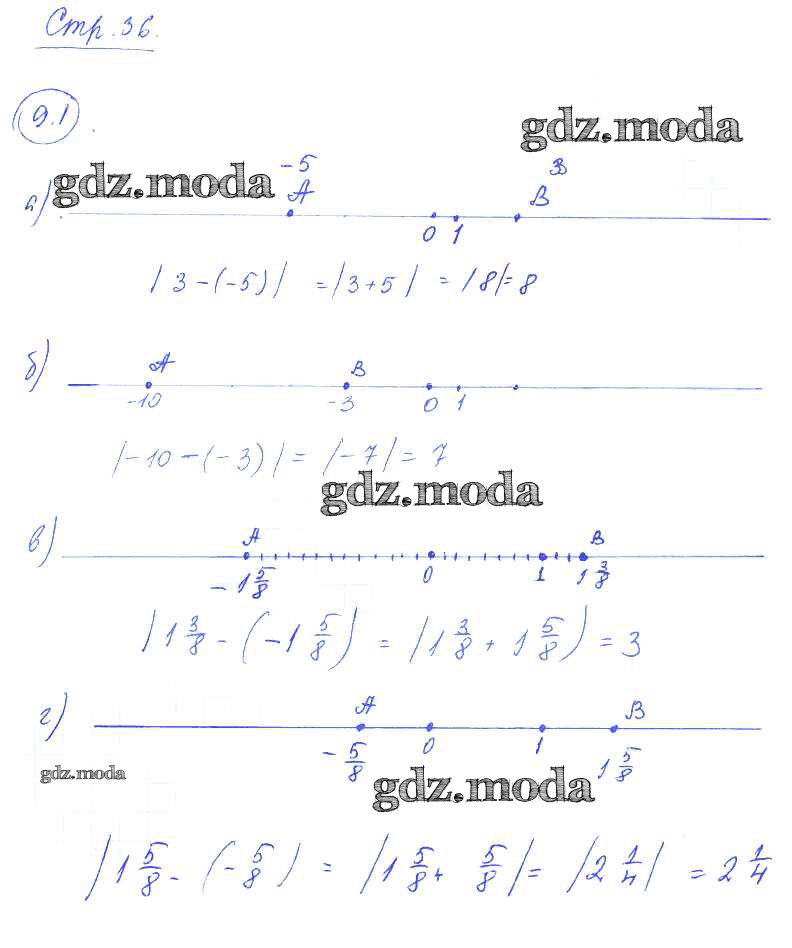 Стр. 36.
9.1
gdz.moda
-5 B
gdz.moda
а) A B
0 1
|3-(-5)| = |3+5| = |8| = 8
б) A B
-10 -3 0 1
|-10-(-3)| = |-7| = 7
gdz.moda
в) A B
-1 5/8 0 1 1 3/8
|1 3/8 - (-1 5/8)| = |1 3/8 + 1 5/8| = 3
г) A B
-5/8 0 1 1 5/8
gdz.moda
gdz.moda
|1 5/8 - (-5/8) = |1 5/8 + 5/8| = |2 1/4| = 2 1/4